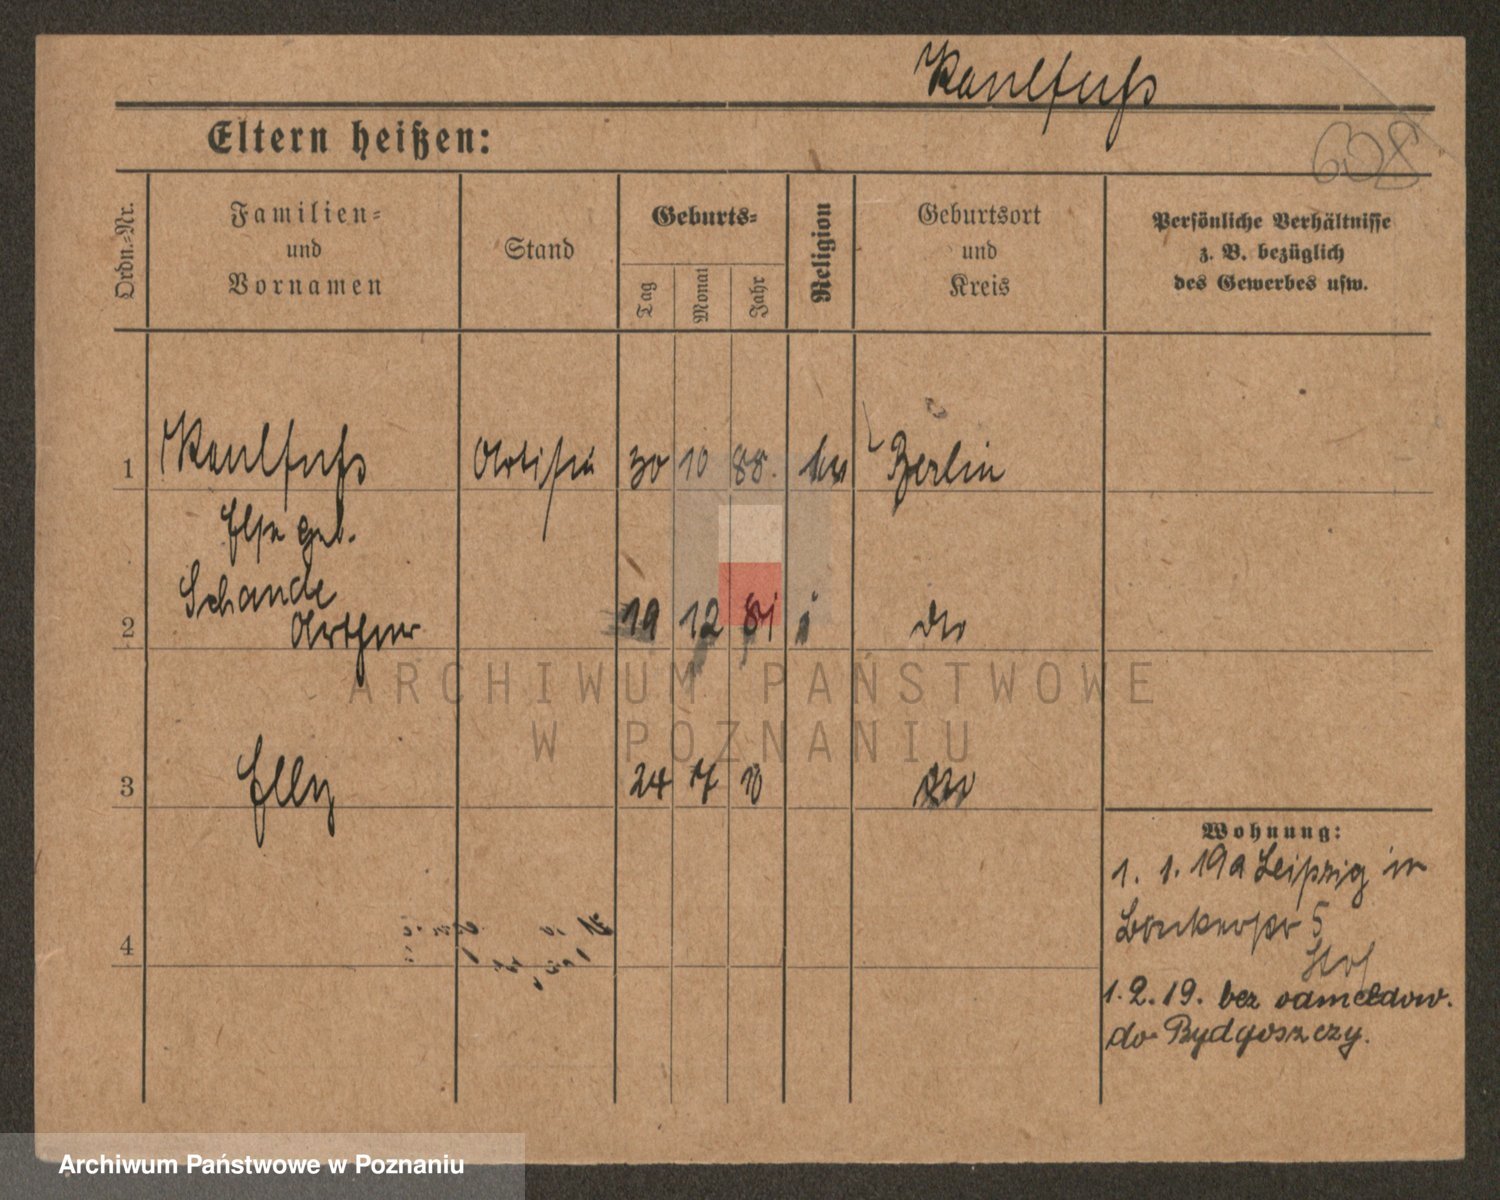 Kaulfuß
Eltern heißen:
Ordn.-Nr.
Familien-
und
Vornamen
Stand
Geburts-
Tag
Monat
Jahr
Religion
Geburtsort
und
Kreis
Persönliche Verhältnisse
z. B. bezüglich
des Gewerbes usw.
1 Kaulfuß Artistin 30 10 88. Berlin
Else geb.
Schande
2 Arthur 19 12 81 j dto
3 Elly 24 7 10 dto
4
Wohnung:
1. 1. 19 a Leipzig in
5
Hof
1.2.19. bez odmeldow.
do Bydgoszczy.
ARCHIWUM PAŃSTWOWE
W POZNANIU
Archiwum Państwowe w Poznaniu